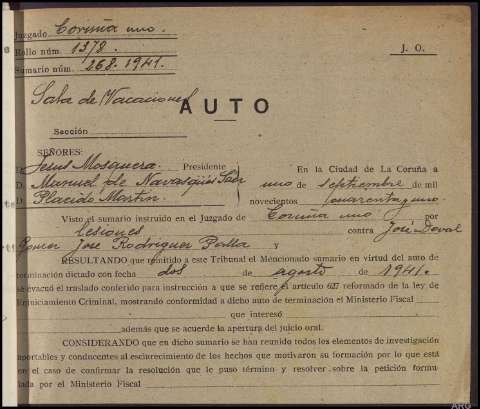 Juzgado Coruña uno.
Rollo núm. 1378.
Sumario núm. 268-1941.
J. O.
Sala de Vacaciones
AUTO
Sección
SEÑORES:
D. Jesus Mosquera. Presidente
D. Manuel de Navasqüés Sáez
D. Placido Martin
En la Ciudad de La Coruña a
uno de septiembre de mil
novecientos cuarenta y uno.
Visto el sumario instruido en el Juzgado de Coruña uno por
lesiones contra José Doval
José Rodriguez y
RESULTANDO que remitido a este Tribunal el Mencionado sumario en virtud del auto de
terminación dictado con fecha dos de agosto de 1941.
se evacuó el traslado conferido para instrucción a que se refiere el artículo 627 reformado de la ley de
Enjuiciamiento Criminal, mostrando conformidad a dicho auto de terminación el Ministerio Fiscal
que interesó
además que se acuerde la apertura del juicio oral.
CONSIDERANDO que en dicho sumario se han reunido todos los elementos de investigación
aportables y conducentes al esclarecimiento de los hechos que motivaron su formación por lo que está
en el caso de confirmar la resolución que le puso término y resolver sobre la petición formu
lada por el Ministerio Fiscal
ARG